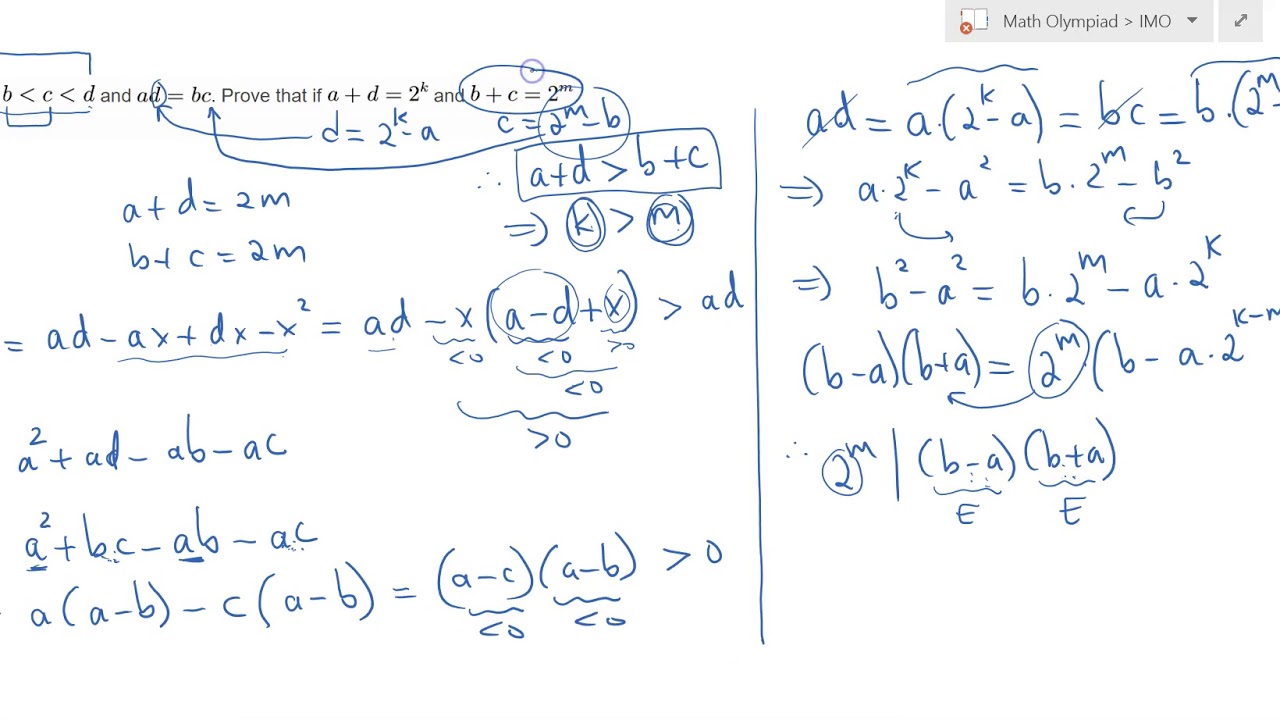 Math Olympiad > IMO
b < c < d and ad = bc. Prove that if a + d = 2^k and b + c = 2^m
d = 2^k - a
c = 2^m - b
∴ a+d > b+c
⇒ k > m
a + d = 2m
b + c = 2m
= ad - ax + dx - x^2 = ad - x(a-d+x) > ad
<0 <0 >0
<0
>0
a^2 + ad - ab - ac
a^2 + bc - ab - ac
a(a-b) - c(a-b) = (a-c)(a-b) > 0
<0 <0
ad = a·(2^k - a) = bc = b·(2^m -
⇒ a·2^k - a^2 = b·2^m - b^2
⇒ b^2 - a^2 = b·2^m - a·2^k
(b-a)(b+a) = 2^m(b - a·2^k-m
∴ 2^m | (b-a)(b+a)
E E